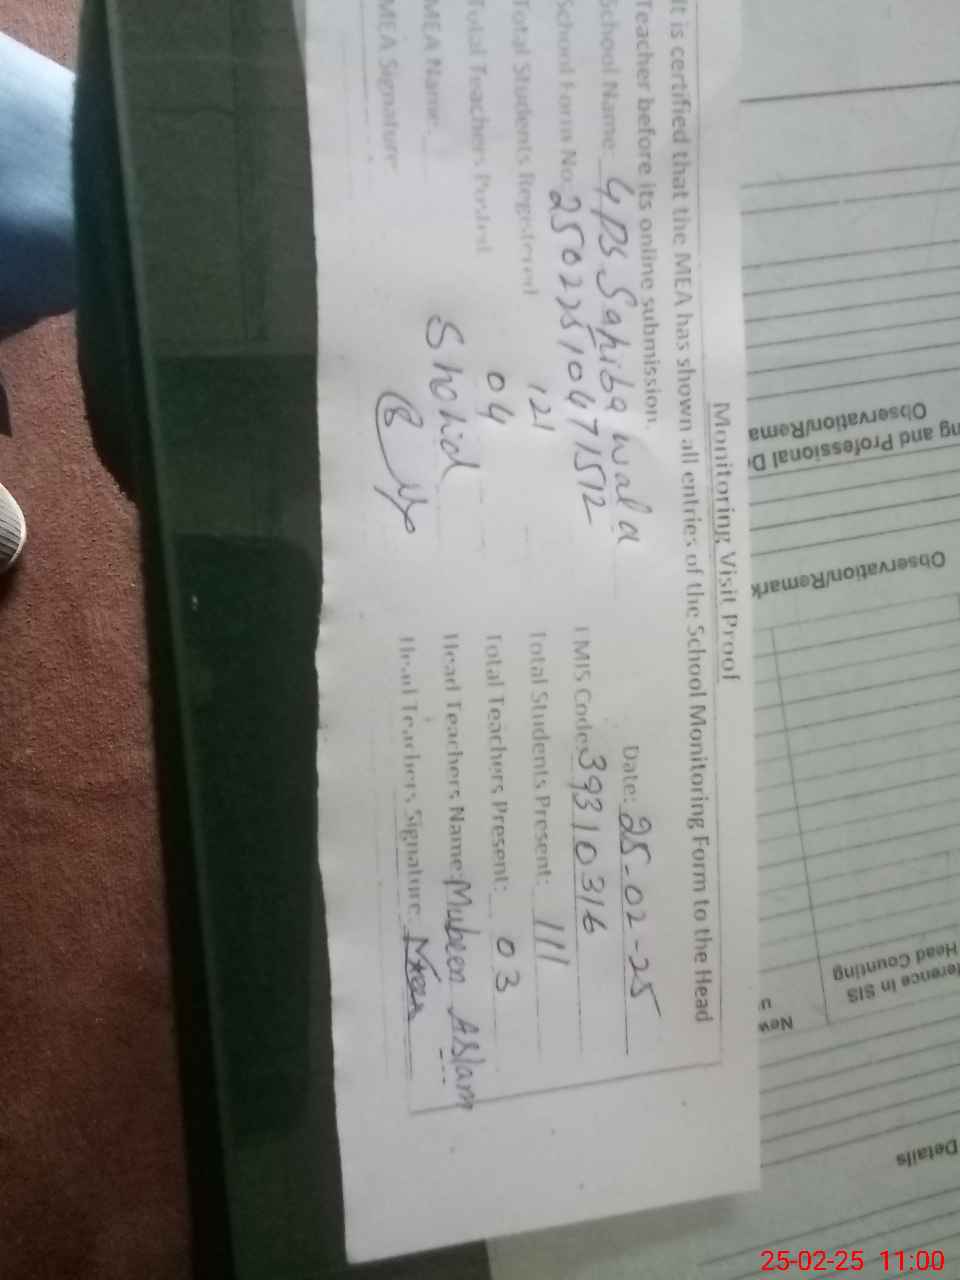 Monitoring Visit Proof
It is certified that the MEA has shown all entries of the School Monitoring Form to the Head
Teacher before its online submission.
Date: 25-02-25
School Name: GPS Sahiba wala
School Form No: 25022510471512 EMIS Code: 39310316
Total Students Registered 121 Total Students Present: 111
Total Teachers Posted 04 Total Teachers Present: 03
MEA Name: Shahid Head Teachers Name: Mubeen Aslam
MEA Signature Head Teachers Signature:
Observation/Rema
ng and Professional D
Observation/Remark
erence in SIS
Head Counting
New
Details
25-02-25 11:00